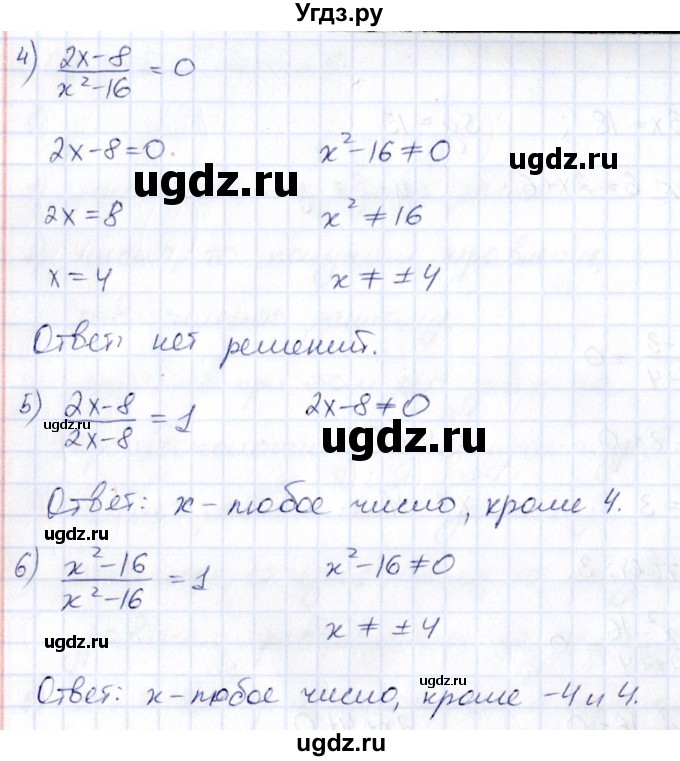 Угдз.ру
4) (2x-8)/(x²-16) = 0
2x-8=0. x²-16≠0
ugdz.ru ugdz.ru
2x=8 x²≠16
x=4 x≠±4
Ответ: нет решений.
5) (2x-8)/(2x-8) = 1 2x-8≠0
ugdz.ru ugdz.ru
Ответ: x-любое число, кроме 4.
ugdz.ru
6) (x²-16)/(x²-16) = 1 x²-16≠0
x≠±4
ugdz.ru ugdz.ru
Ответ: x-любое число, кроме -4 и 4.
ugdz.ru